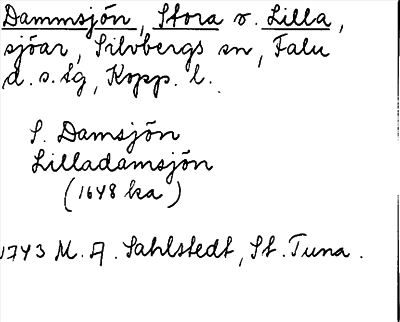 Dammsjön, Stora o. Lilla,
sjöar, Silvbergs sn, Falu
d. s. lg, Kopp. l.
S. Damsjön
Lilladamsjön
(1648 ka)
1743 M. A. Sahlstedt, St. Tuna.